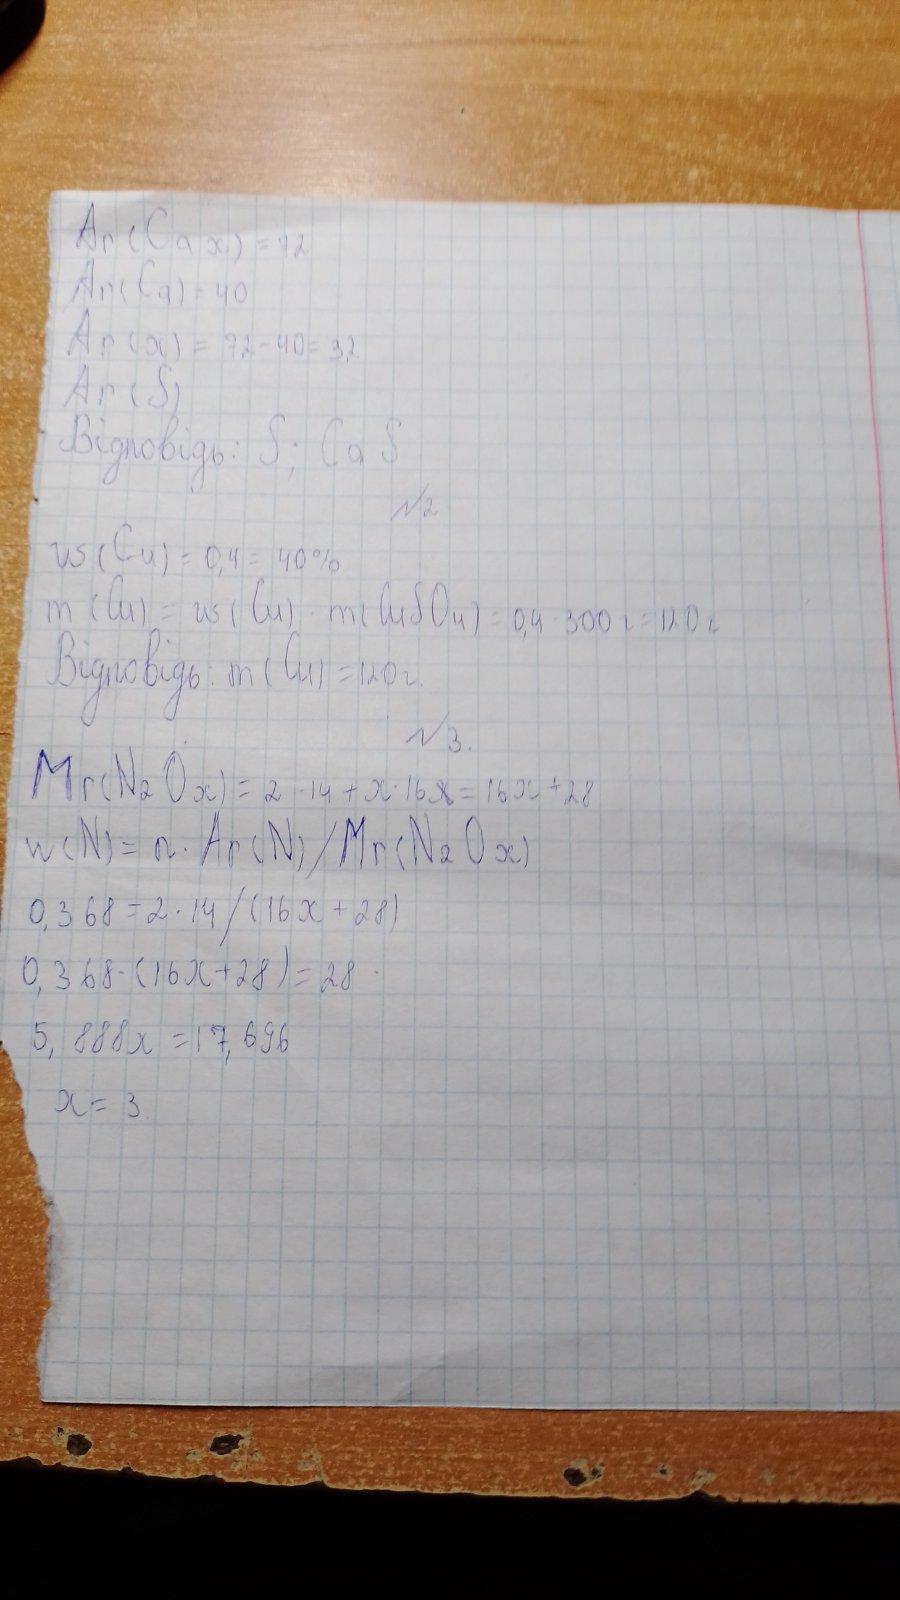 Ar(Ca x) = 72
Ar(Ca) = 40
Ar(x) = 72-40 = 32
Ar(S)
Відповідь: S; CaS
№2
w(Cu) = 0,4 = 40%
m(Cu) = w(Cu) · m(CuSO4) = 0,4 · 300 г = 120 г
Відповідь: m(Cu) = 120 г.
№3.
Mr(N2Ox) = 2 · 14 + x · 16 = 16x + 28
w(N) = n · Ar(N) / Mr(N2Ox)
0,368 = 2 · 14 / (16x + 28)
0,368 · (16x + 28) = 28
5,888x = 17,696
x = 3